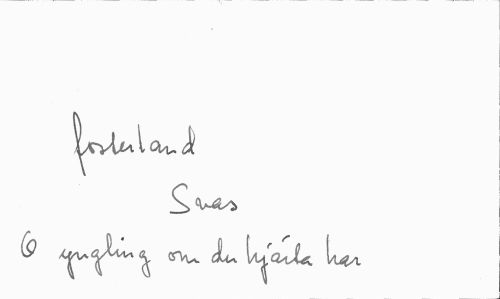 fosterland
Svas
O yngling om du hjärta har